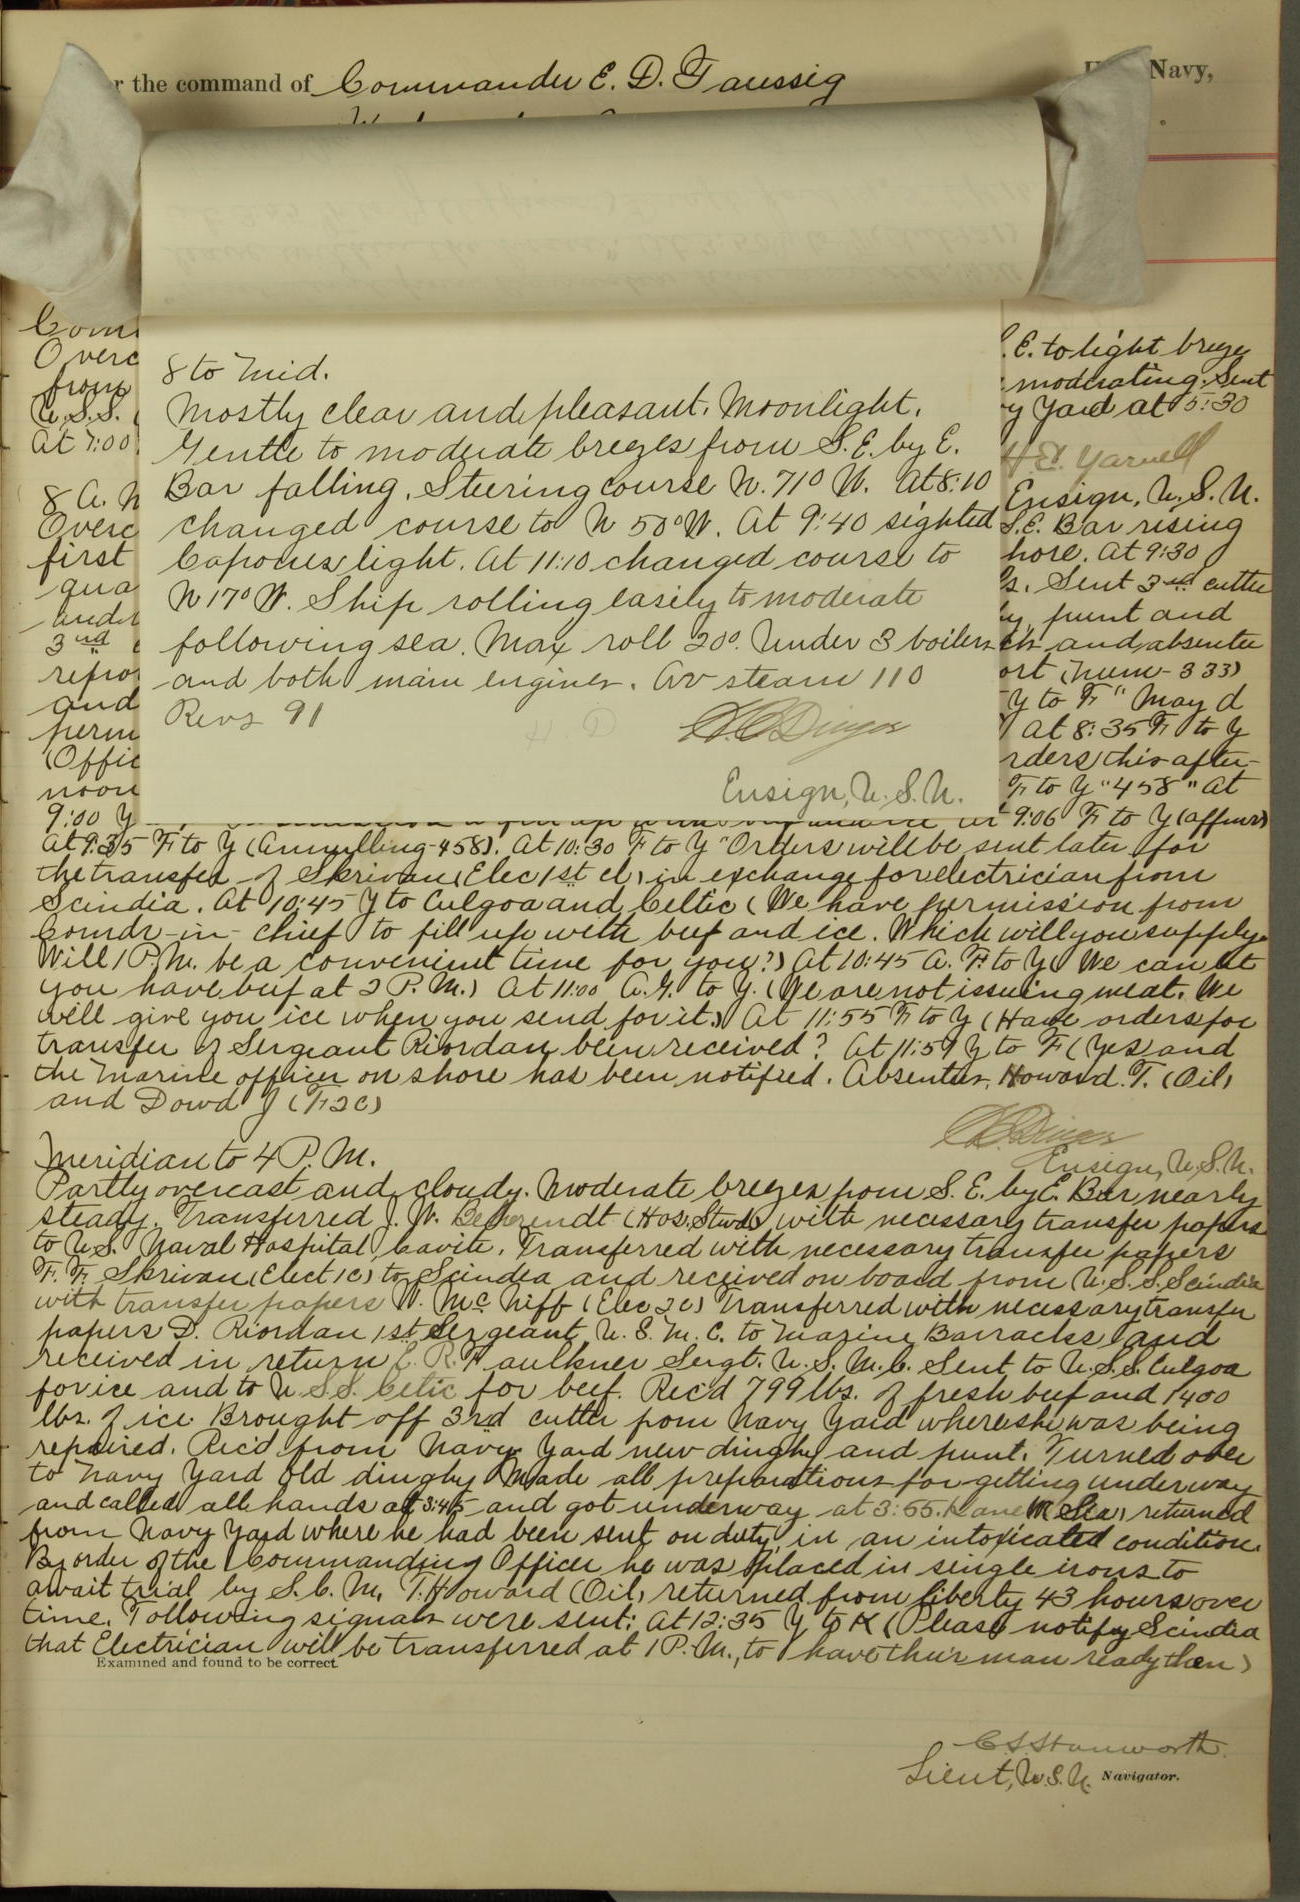 r the command of Commander E. D. Taussig Navy,
8 to Mid.
Mostly clear and pleasant. Moonlight.
Gentle to moderate breezes from S.E. by E.
Bar falling. Steering course N. 71° W. At 8:10
changed course to N 50° W. At 9:40 sighted
light. At 11:10 changed course to
N 17° W. Ship rolling easily to moderate
following sea. Max roll 20°. Under 3 boilers
and both main engines. Av steam 110
Revs 91
Ensign, U.S.N.
Com
Overc
from
U.S.S.
At 7:00
8 A. M
Overc
first
qua
under
3rd
repor
and
perm
(Offic
noon
9:00 Y
.E. to light breeze
moderating. Sent
y Yard at 5:30
H.E. Yarnell
Ensign, U.S.N.
S.E. Bar rising
hore. At 9:30
s. Sent 3rd cutter
punt and
and absentee
ort (num-333)
Y to F "May d
At 8:35 F to Y
rders this after-
F to Y "458" At
9:06 F to Y (affirm)
At 9:35 F to Y (Annulling-458). At 10:30 F to Y "Orders will be sent later for
the transfer of Skrivan (Elec 1st cl) in exchange for electrician from
Scindia. At 10:45 Y to Culgoa and Celtic (We have permission from
Comdr-in-Chief to fill up with beef and ice. Which will you supply.
Will 1 P.M. be a convenient time for you?) At 10:45 A. F to Y. We can let
you have beef at 2 P.M.) At 11:00 A.G. to Y. (We are not issuing meat. We
will give you ice when you send for it.) At 11:55 F to Y (Have orders for
transfer of Sergeant Riordan been received? At 11:59 Y to F (Yes and
the Marine officer on shore has been notified. Absentees, Howard T. (Oil)
and Dowd J (F2C)
Ensign, U.S.N.
Meridian to 4 P.M.
Partly overcast and cloudy. Moderate breezes from S.E. by E. Bar nearly
steady. Transferred J. W. (Hos. Stwd) with necessary transfer papers
to U.S. Naval Hospital Cavite. Transferred with necessary transfer papers
F. F. Skrivan (Elect 1c) to Scindia and received on board from U.S.S. Scindia
with transfer papers W. McNiff (Elec 2c) Transferred with necessary transfer
papers D. Riordan 1st Sergeant, U.S.M.C. to Marine Barracks and
received in return E. R. Faulkner Sergt. U.S.M.C. Sent to U.S.S. Culgoa
for ice and to U.S.S. Celtic for beef. Rec'd 799 lbs. of fresh beef and 1400
lbs. of ice. Brought off 3rd cutter from Navy Yard where she was being
repaired. Rec'd from Navy Yard new dinghy and punt. Turned over
to Navy Yard old dinghy Made all preparations for getting underway
and called all hands at 3:45 and got underway at 3:55. M (Sea) returned
from Navy Yard where he had been sent on duty, in an intoxicated condition.
By order of the Commanding Officer he was placed in single irons to
await trial by S.C.M. T. Howard (Oil) returned from liberty 43 hours over
time. Following signals were sent: At 12:35 Y to K (Please notify Scindia
that Electrician will be transferred at 1 P.M., to have their man ready then)
Examined and found to be correct.
C.S. Stanworth
Lieut, U.S.N. Navigator.